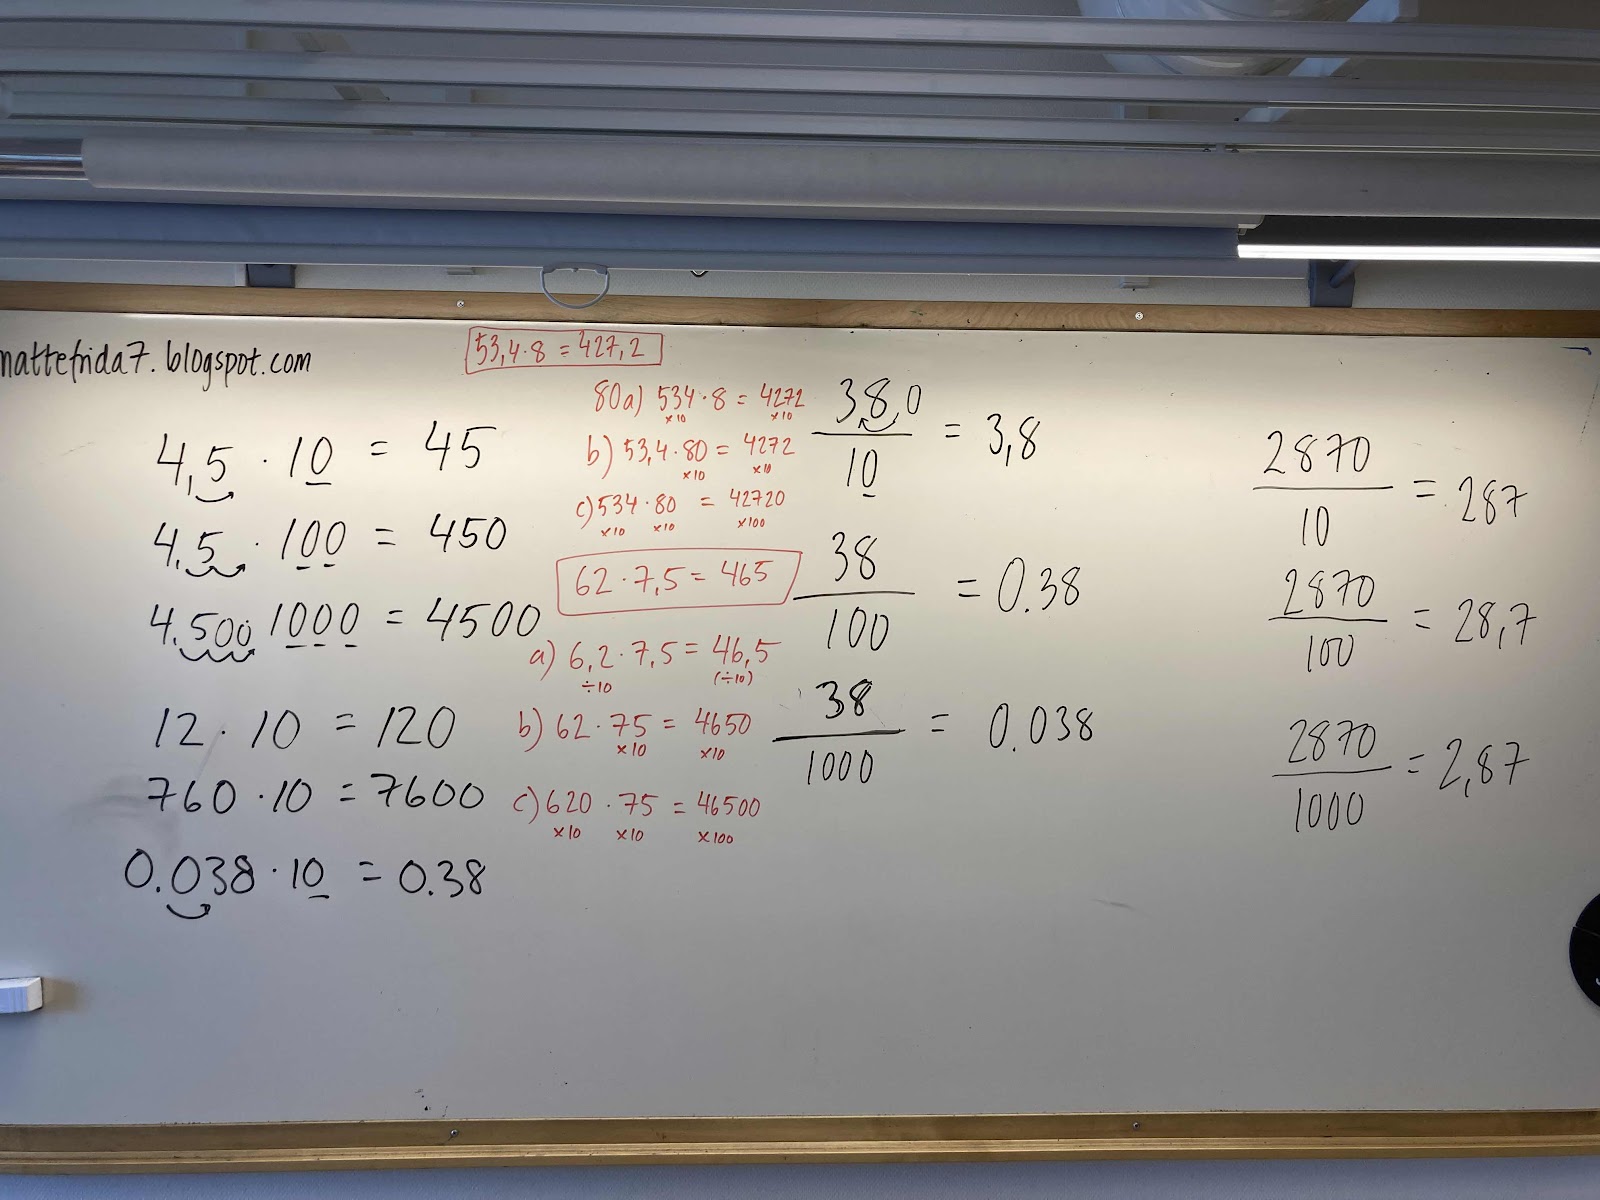 mattefrida7.blogspot.com
4,5 · 10 = 45
4,5 · 100 = 450
4,500 1000 = 4500
12 · 10 = 120
760 · 10 = 7600
0.038 · 10 = 0.38
53,4 · 8 = 427,2
80a) 534 · 8 = 4272
×10 ×10
b) 53,4 · 80 = 4272
×10 ×10
c) 534 · 80 = 42720
×10 ×10 ×100
62 · 7,5 = 465
a) 6,2 · 7,5 = 46,5
÷10 (÷10)
b) 62 · 75 = 4650
×10 ×10
c) 620 · 75 = 46500
×10 ×10 ×100
38,0
10
= 3,8
38
100
= 0.38
38
1000
= 0.038
2870
10
= 287
2870
100
= 28,7
2870
1000
= 2,87